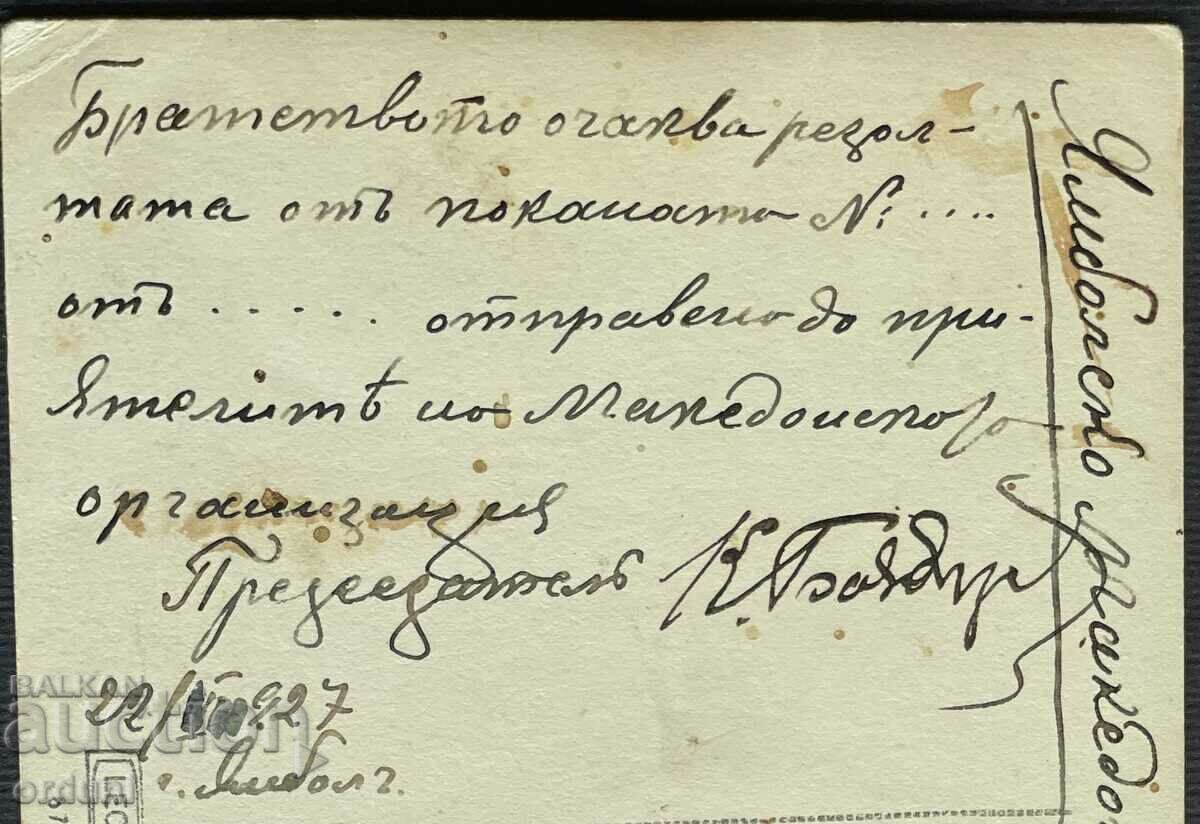 Братството очаква резол-
тата отъ поканата №: ....
отъ ..... отправена до при-
ятелитѣ на Македонска
организация
Председателъ К.
22/ 927
г. Ямболъ
Ямболско Македо
BALKAN
auction
orduni
LEO